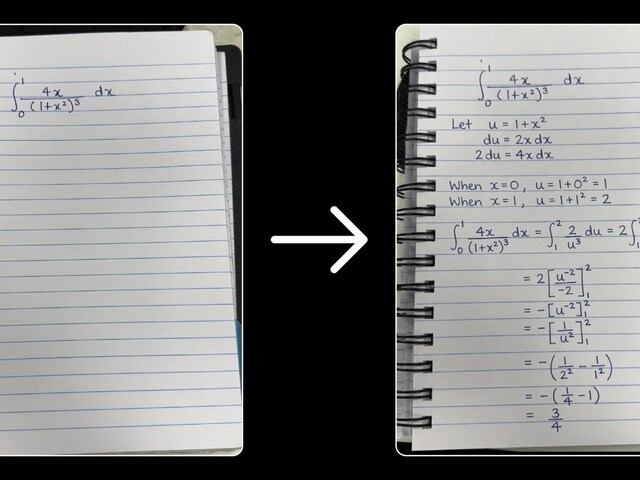 ∫₀¹ 4x/(1+x²)³ dx
∫₀¹ 4x/(1+x²)³ dx
Let u = 1+x²
du = 2x dx
2 du = 4x dx
When x=0, u = 1+0² = 1
When x=1, u = 1+1² = 2
∫₀¹ 4x/(1+x²)³ dx = ∫₁² 2/u³ du = 2∫₁²
= 2[u⁻²/-2]₁²
= -[u⁻²]₁²
= -[1/u²]₁²
= -(1/2² - 1/1²)
= -(1/4 - 1)
= 3/4